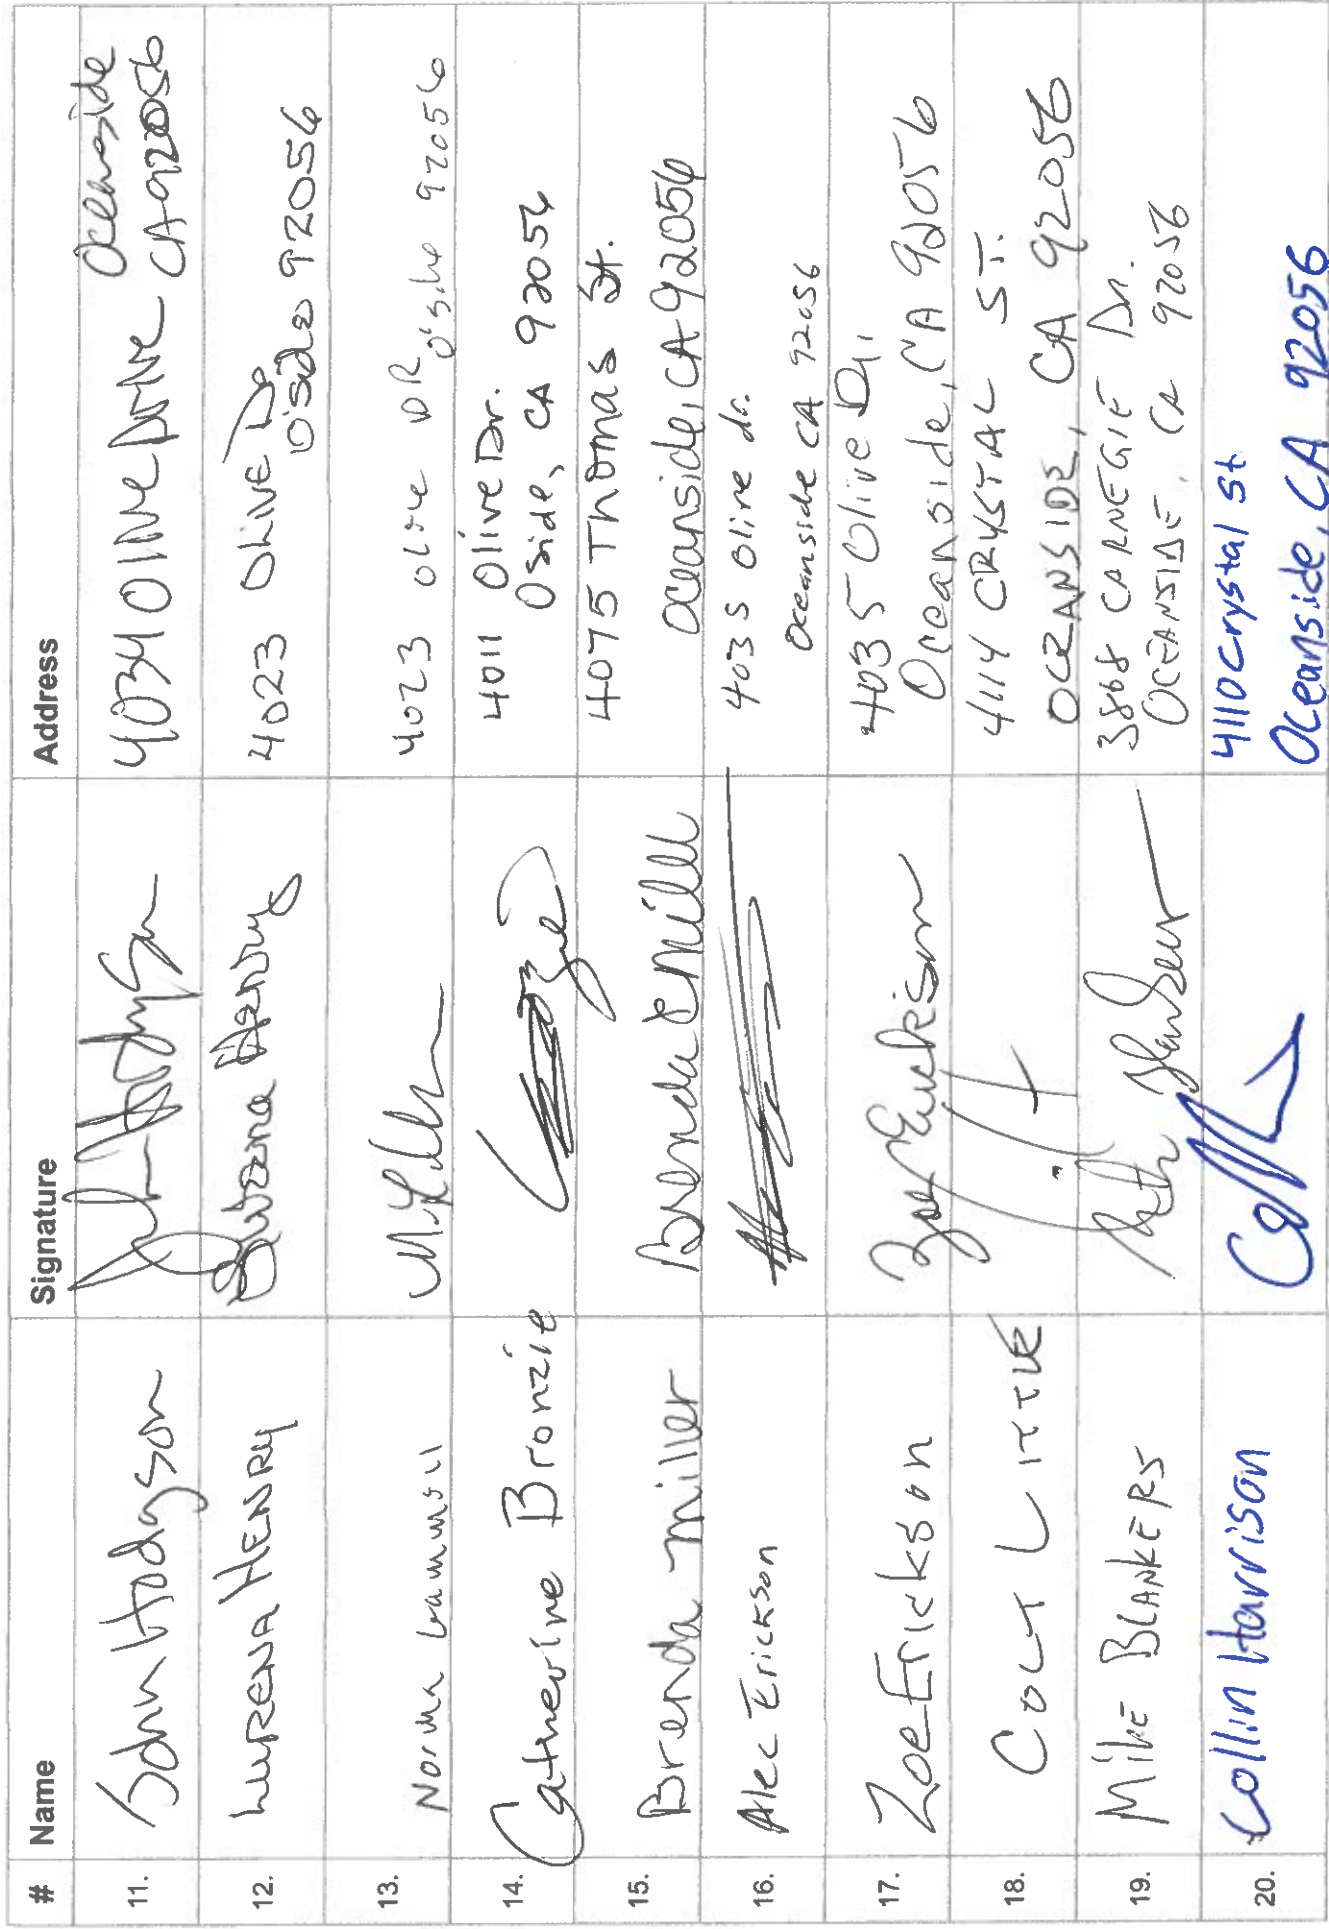 # Name Signature Address
11. John Hodgson 4034 Olive Drive Oceanside
CA 92056
12. LURENA HENRY Lurena Henry 4023 OLIVE Dr
O'side 92056
13. Norma 4023 olive DR
O'side 92056
14. Catherine Bronzie 4011 Olive Dr.
Oside, CA 92056
15. Brenda Miller Brenda C Miller 4075 Thomas St.
Oceanside, CA 92056
16. Alec Erickson 4035 Olive dr.
Oceanside CA 92056
17. Zoe Erickson Zoe Erickson 4035 Olive Dr.
Oceanside, CA 92056
18. COLT LITTLE 4114 CRYSTAL ST.
OCEANSIDE, CA 92056
19. MIKE BLANKERS 3868 CARNEGIE Dr.
OCEANSIDE, CA 92056
20. Collin Harrison 4110 Crystal St
Oceanside, CA 92056